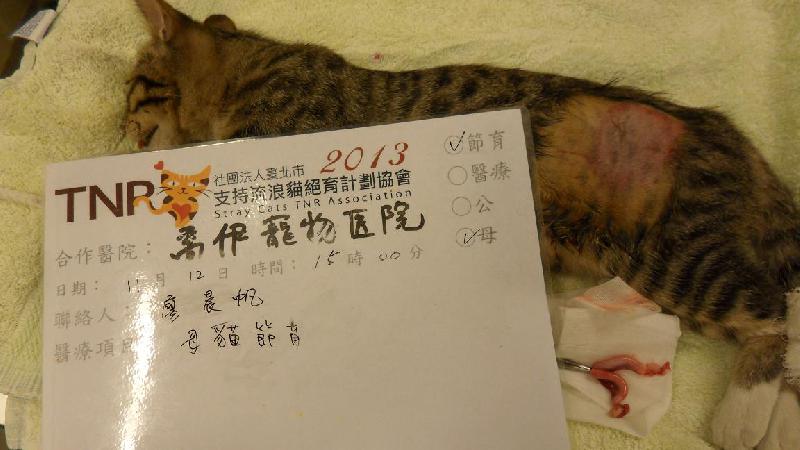 TNR 社團法人臺北市 2013
支持流浪貓絕育計劃協會
Stray Cats TNR Association
合作醫院：喬伊寵物医院
日期：11月12日 時間：15時00分
聯絡人：廖晨帆
醫療項目：母貓節育
節育
醫療
公
母